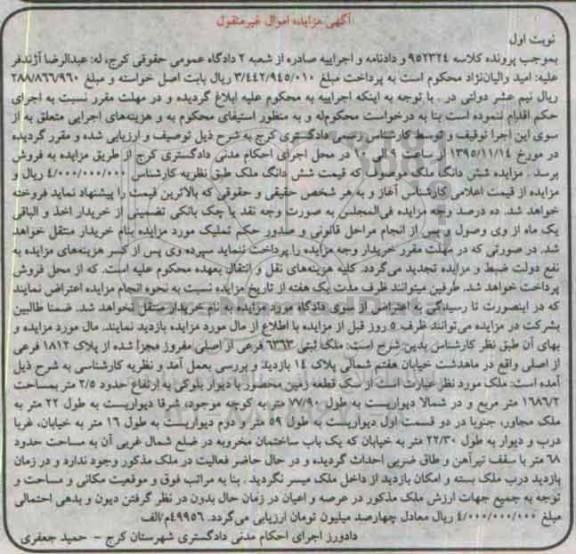 آگهی مزایده اموال غیرمنقول
نوبت اول
بموجب پرونده کلاسه ۹۵۲۳۲۴ و دادنامه و اجراییه صادره از شعبه ۲ دادگاه عمومی حقوقی کرج، له: عبدالرضا آژندفر
علیه: امید والیان‌نژاد محکوم است به پرداخت مبلغ ۳/۴۴۲/۹۴۵/۰۱۰ ریال بابت اصل خواسته و مبلغ ۲۸۸/۸۶۶/۹۶۰
ریال نیم عشر دولتی در . با توجه به اینکه اجراییه به محکوم علیه ابلاغ گردیده و در مهلت مقرر نسبت به اجرای
حکم اقدام ننموده است بنا به درخواست محکوم‌له و به منظور استیفای محکوم به و هزینه‌های اجرایی متعلق به از
سوی این اجرا توقیف و توسط کارشناس رسمی دادگستری کرج به شرح ذیل توصیف و ارزیابی شده و مقرر گردیده
در مورخ ۱۳۹۵/۱۱/۱۴ از ساعت ۹ الی ۱۰ در محل اجرای احکام مدنی دادگستری کرج از طریق مزایده به فروش
برسد . مزایده شش دانگ ملک موصوف که قیمت شش دانگ ملک طبق نظریه کارشناس ۴/۰۰۰/۰۰۰/۰۰۰ ریال و
مزایده از قیمت اعلامی کارشناس آغاز و به هر شخص حقیقی و حقوقی که بالاترین قیمت را پیشنهاد نماید فروخته
خواهد شد. ده درصد وجه مزایده فی‌المجلس به صورت وجه نقد یا چک بانکی تضمینی از خریدار اخذ و الباقی
یک ماه از وی وصول و پس از انجام مراحل قانونی و صدور حکم تملیک مورد مزایده بنام خریدار منتقل خواهد
شد. در صورتی که در مهلت مقرر خریدار وجه مزایده را پرداخت ننماید سپرده وی پس از کسر هزینه‌های مزایده به
نفع دولت ضبط و مزایده تجدید می‌گردد. کلیه هزینه‌های نقل و انتقال بعهده محکوم علیه است. که از محل فروش
پرداخت خواهد شد. طرفین میتوانند ظرف مدت یک هفته از تاریخ مزایده نسبت به نحوه انجام مزایده اعتراض نمایند
که در اینصورت تا رسیدگی به اعتراض از سوی دادگاه مورد مزایده به نام خریدار منتقل نخواهد شد. ضمنا طالبین
بشرکت در مزایده می‌توانند ظرف ۵ روز قبل از مزایده با اطلاع از مال مورد مزایده بازدید نمایند. مال مورد مزایده و
بهای آن طبق نظر کارشناس بدین شرح است: ملک ثبتی ۶۳۶۳ فرعی از اصلی مفروز مجزا شده از پلاک ۱۸۱۲ فرعی
از اصلی واقع در ماهدشت خیابان هفتم شمالی پلاک ۱۴ بازدید و بررسی بعمل آمد و نظریه کارشناسی به شرح ذیل
آمده است: ملک مورد نظر عبارت است از یک قطعه زمین محصور با دیوار بلوکی به ارتفاع حدود ۲/۵ متر بمساحت
۱۶۸۶/۲ متر مربع و در شمالا دیواریست به طول ۷۷/۹۰ متر به کوچه موجود، شرقا دیواریست به طول ۲۲ متر به
ملک مجاور، جنوبا در دو قسمت اول دیواریست به طول ۵۹ متر و دوم دیواریست به طول ۱۶ متر به خیابان، غربا
درب و دیوار به طول ۲۲/۳۰ متر به خیابان که یک باب ساختمان مخروبه در ضلع شمال غربی آن به مساحت حدود
۶۸ متر با سقف تیرآهن و طاق ضربی احداث گردیده و در حال حاضر فعالیت در ملک مذکور وجود ندارد و در زمان
بازدید درب ملک بسته و امکان بازدید از داخل ملک میسر نگردید . بنا به مراتب فوق و موقعیت مکانی و مساحت و
توجه به جمیع جهات ارزش ملک مذکور در عرصه و اعیان در زمان حال بدون در نظر گرفتن دیون و بدهی احتمالی
مبلغ ۴/۰۰۰/۰۰۰/۰۰۰ ریال معادل چهارصد میلیون تومان ارزیابی می‌گردد. ۴۹۹۵۶/م‌الف
دادورز اجرای احکام مدنی دادگستری شهرستان کرج - حمید جعفری